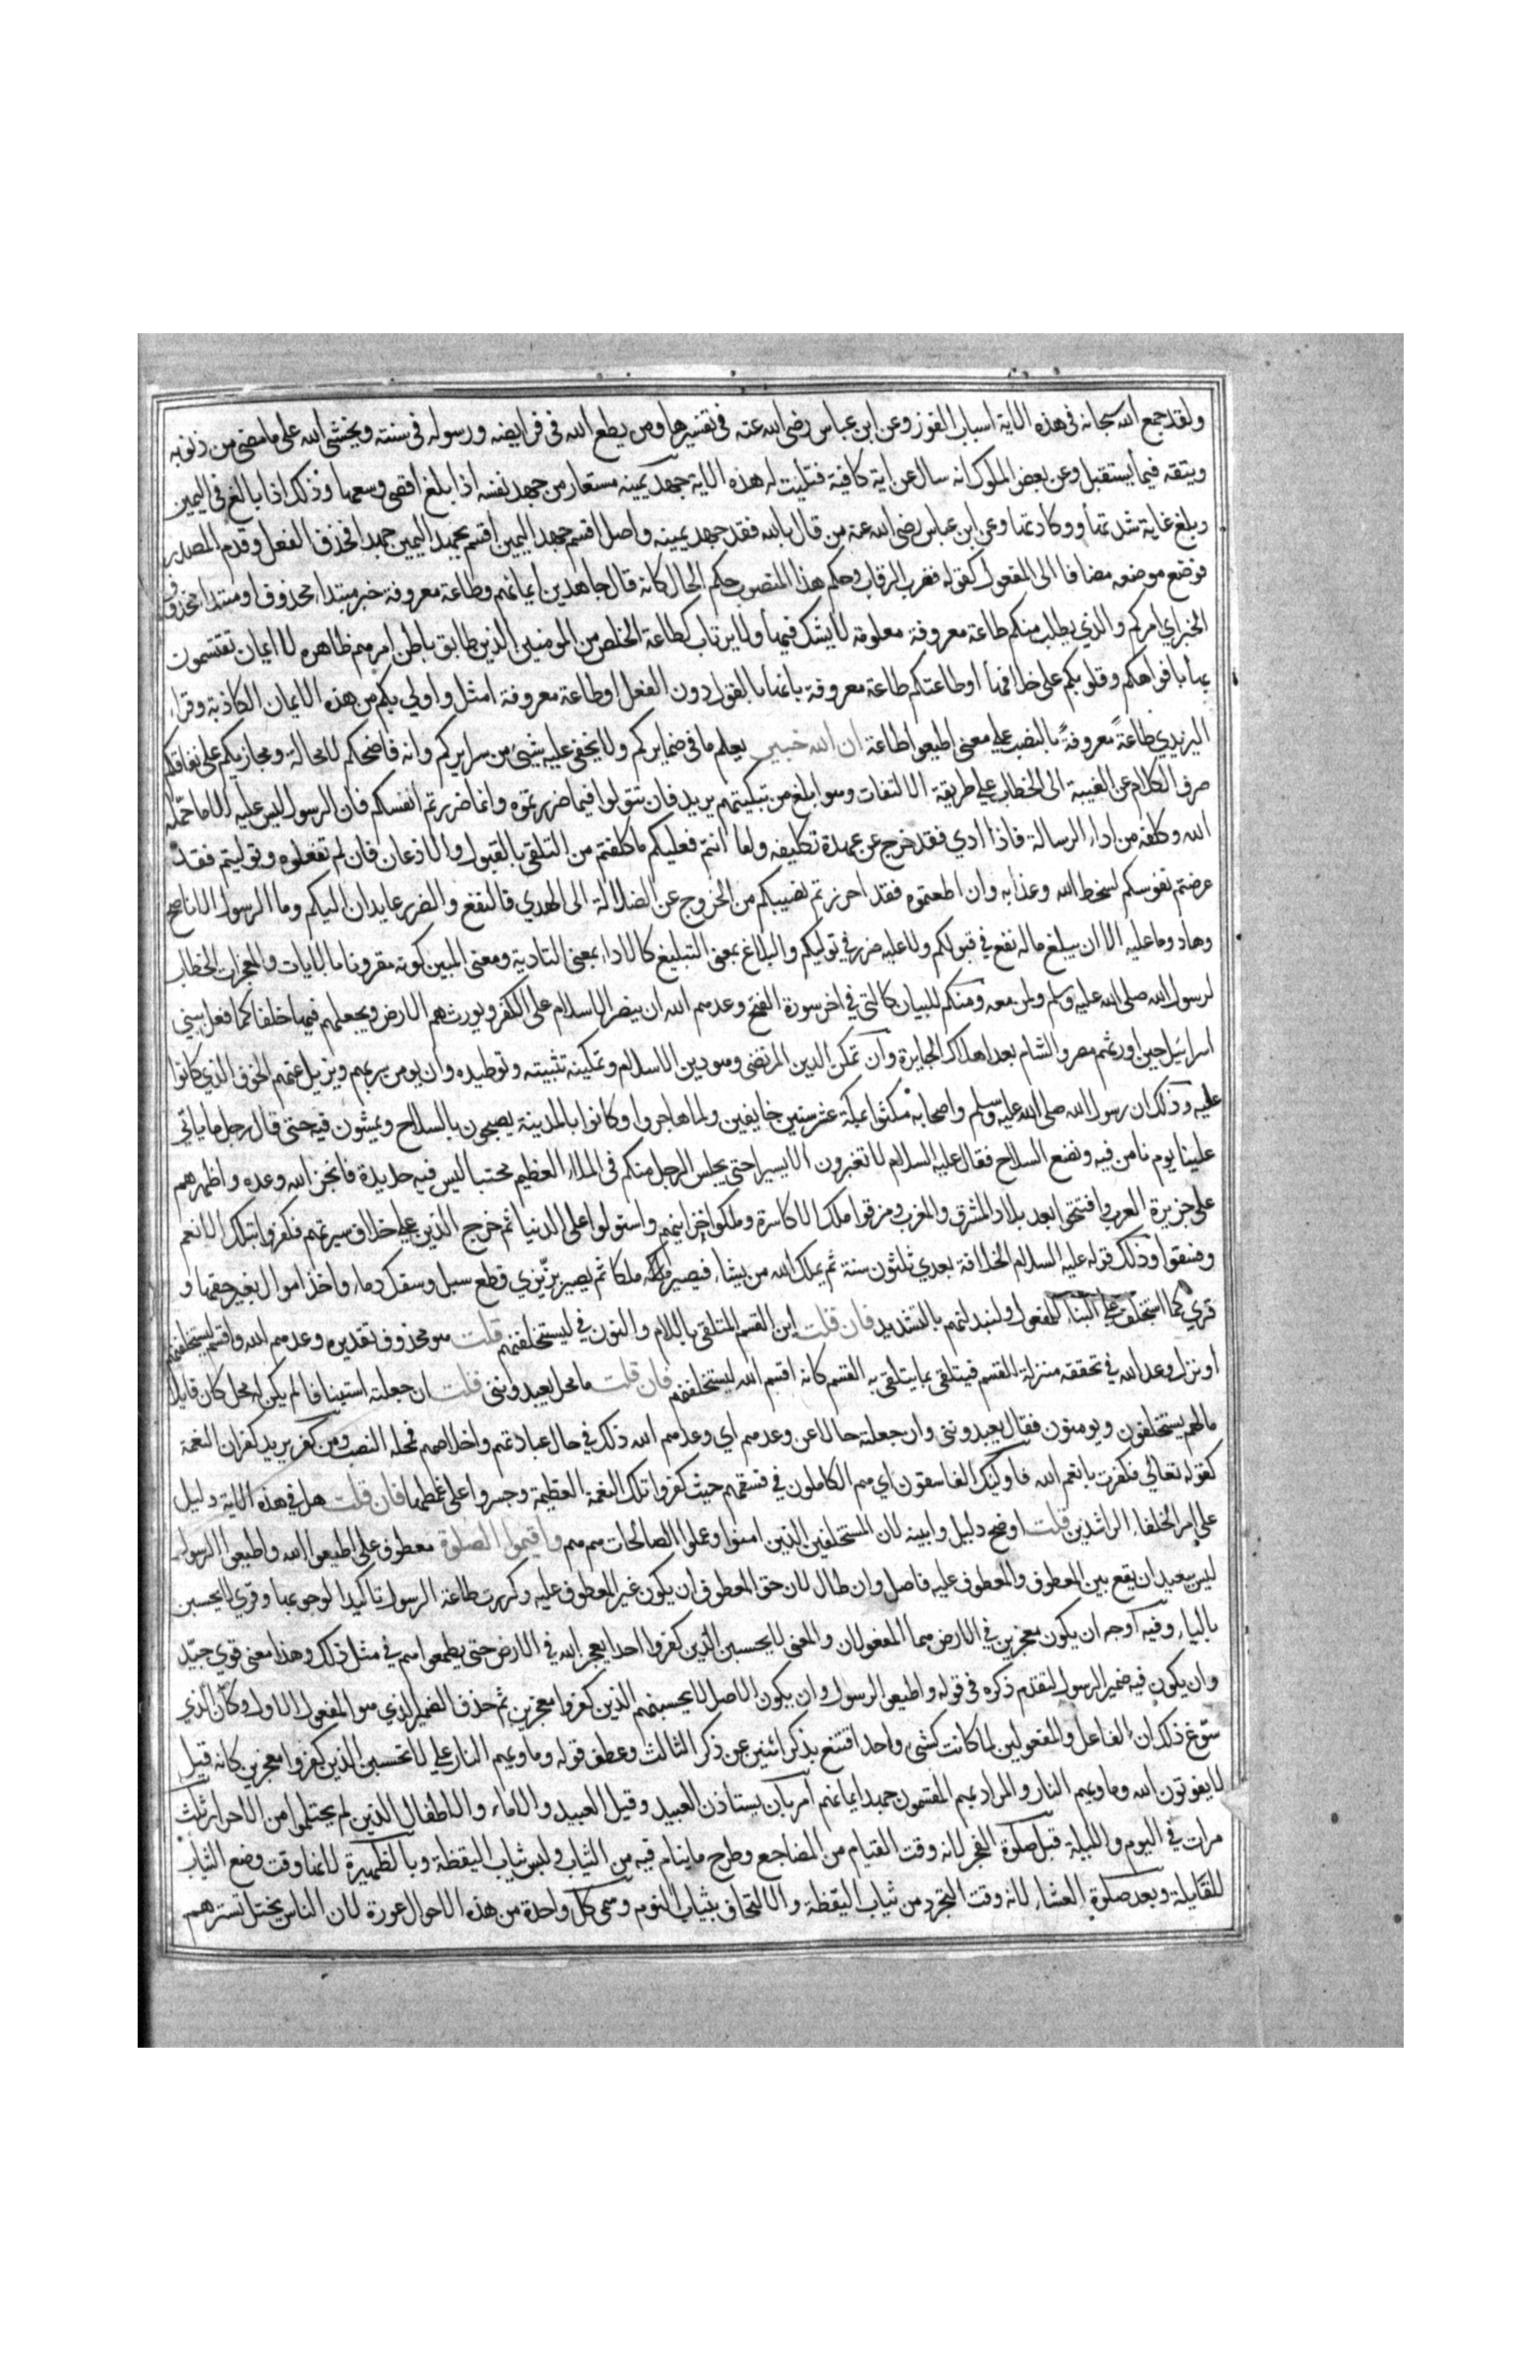 ولقد جمع الله سبحانه فى هذه الاية اسباب الفوز وعن ابن عباس رضى الله عنه فى تفسيرها ومن يطع الله فى فرايضه ورسوله فى سنته ويخشى الله على ما مضى من ذنوبه
ويتقه فيما يستقبل وعن بعض الملوك انه سال عن اية كافية فتليت له هذه الاية جهد يمينه مستعار من جهد نفسه اذا بلغ اقصى وسعها وذلك اذا بالغ فى اليمين
وبلغ غاية شدتها ووكادتها وعن ابن عباس رضى الله عنه من قال بالله فقد جهد يمينه واصل اقسم جهد اليمين اقسم بجهد اليمين جهدا فحذف الفعل وقدم المصدر
فوضع موضعه مضافا الى المفعول كقوله فضرب الرقاب وحكم هذا المنصوب حكم الحال كانه قال جاهدين ايمانهم وطاعة معروفة خبر مبتداء محذوف او مبتداء محذوف
الخبر اي امركم والذي يطلب منكم طاعة معروفة معلومة لا يشك فيها ولا يرتاب كطاعة الخلص من المومنين الذين طابق باطن امرهم ظاهره لا ايمان تقتسمون
بها بافواهكم وقلوبكم على خلافها او طاعتكم طاعة معروفة بانها بالقول دون الفعل او طاعة معروفة امثل واولي بكم من هذه الايمان الكاذبة وقراء
اليزيدي طاعةً معروفةً بالنصب علي معنى اطيعوا طاعة ان الله خبير يعلم ما في ضمايركم ولا يخفى عليه شيئ من سرايركم وانه فاضحكم لا محالة ومجازيكم على نفاقكم
صرف الكلام عن الغيبة الى الخطاب علي طريقة الالتفات وهو ابلغ من تبكيتهم يريد فان تتولوا فيما ضررتموه وانما ضررتم انفسكم فان الرسول ليس عليه الا ما حمّله
الله وكلفه من اداء الرسالة فاذا ادي فقد خرج عن عهدة تكليفه واما انتم فعليكم ما كلفتم من التلقي بالقبول والاذعان فان لم تفعلوه وتوليتم فقد
عرضتم نفوسكم لسخط الله وعذابه وان اطعتموه فقد احرزتم نصيبكم من الخروج عن الضلالة الى الهدي فالنفع والضرر عايدان اليكم وما الرسول الا ناصح
وهاد وما عليه الا ان يبلغ ماله نفع في قبولكم ولا عليه ضرر في توليكم والبلاغ بمعنى التبليغ كالاداء بمعنى التادية ومعنى المبين كونه مقرونا بالايات والمعجزات الخطاب
لرسول الله صلى الله عليه وسلم ولمن معه ومنكم للبيان كالتى في اخر سورة الفتح وعدهم الله ان ينصر الاسلام على الكفر ويورثهم الارض ويجعلهم فيها خلفا كما فعل ببني
اسرائيل حين اورثهم مصر والشام بعد اهلاك الجبابرة وان تمكن الدين المرتضى وهو دين الاسلام وتمكينه تثبيته وتوطيده وان يومن سربهم ويزيل عنهم الخوف الذي كانوا
عليه وذلك ان رسول الله صلى الله عليه وسلم واصحابه مكثوا بمكة عشر سنين خايفين ولما هاجروا وكانوا بالمدينة يصبحون بالسلاح ويمشون فيه حتى قال رجل ما ياتى
علينا يوم نامن فيه ونضع السلاح فقال عليه السلام لا تغبرون الا يسيرا حتي يجلس الرجل منكم في الملاء العظيم محتبيا ليس فيه حديدة فانجز الله وعده واظهرهم
على جزيرة العرب وافتتحوا بعد بلاد المشرق والمغرب ومزقوا ملك الاكاسرة وملكوا خزاينهم واستولوا على الدنيا ثم خرج الذين علي خلاف سيرتهم فكفروا بتلك الانعم
وفسقوا وذلك قوله عليه السلام الخلافة بعدي ثلثون سنة ثم يملك الله من يشاء فيصير ملكا ثم يصير بزّيزي قطع سبل وسفك دماء واخذ اموال بغير حقها و
قري كما استخلف علي البناء للمفعول وليبدلنهم بالتشديد فان قلت اين القسم المتلقى باللام والنون في ليستخلفنهم قلت هو محذوف تقديره وعدهم الله واقسم ليستخلفنهم
او نزل وعد الله في تحققه منزلة القسم فيتلقى بما يتلقى به القسم كانه اقسم الله ليستخلفنهم فان قلت ما محل يعبدونني قلت ان جعلته استينافا لم يكن له محل كان قايلا
مالهم يستخلفون ويومنون فقال يعبدونني وان جعلته حالا عن وعدهم اي وعدهم الله ذلك في حال عبادتهم واخلاصهم فمحله النصب ومن كفر يريد كفران النعمة
كقوله تعالي فكفرت بانعم الله فاوليك الفاسقون اي هم الكاملون في فسقهم حيث كفروا تلك النعمة العظيمة وجسروا على غمطها فان قلت هل في هذه الاية دليل
على امر الخلفاء الراشدين قلت اوضح دليل وابينه لان المستخلفين الذين امنوا وعملوا الصالحات هم هم واقيموا الصلوة معطوف على اطيعوا الله واطيعوا الرسول
ليس ببعيد ان يقع بين المعطوف والمعطوف عليه فاصل وان طال لان حق المعطوف ان يكون غير المعطوف عليه وكررت طاعة الرسول تاكيدا لوجوبها وقري لا يحسبن
بالياء وفيه اوجه ان يكون معجزين في الارض هما المفعولان والمعنى لا يحسبن الذين كفروا احدا يعجز الله في الارض حتى يطمعوا هم في مثل ذلك وهذا معنى قوي جيّد
وان يكون فيه ضمير الرسول لتقدم ذكره فى قوله واطيعوا الرسول وان يكون الاصل لا يحسبنهم الذين كفروا معجزين ثم حذف الضمير الذي هو المفعول الاول وكان الذي
سوّغ ذلك ان الفاعل والمفعولين لما كانت كشى واحد اقتنع بذكر اثنين عن ذكر الثالث وعطف قوله وماويهم النار علي لا تحسبن الذين كفروا معجزين كانه قيل
لا يفوتون الله وماويهم النار والمراد بهم المقسمون جهد ايمانهم امر بان يستاذن العبيد وقيل العبيد والاماء والاطفال الذين لم يحتلموا من الاحرار ثلث
مرات في اليوم والليلة قبل صلوة الفجر لانه وقت القيام من المضاجع وطرح ما ينام فيه من الثياب ولبس ثياب اليقظة وبالظهيرة لانها وقت وضع الثياب
للقايلة وبعد صلوة العشاء لانه وقت التجرد من ثياب اليقظة والالتحاف بثياب النوم وسمى كل واحدة من هذه الاحوال عورة لان الناس يختل تسترهم